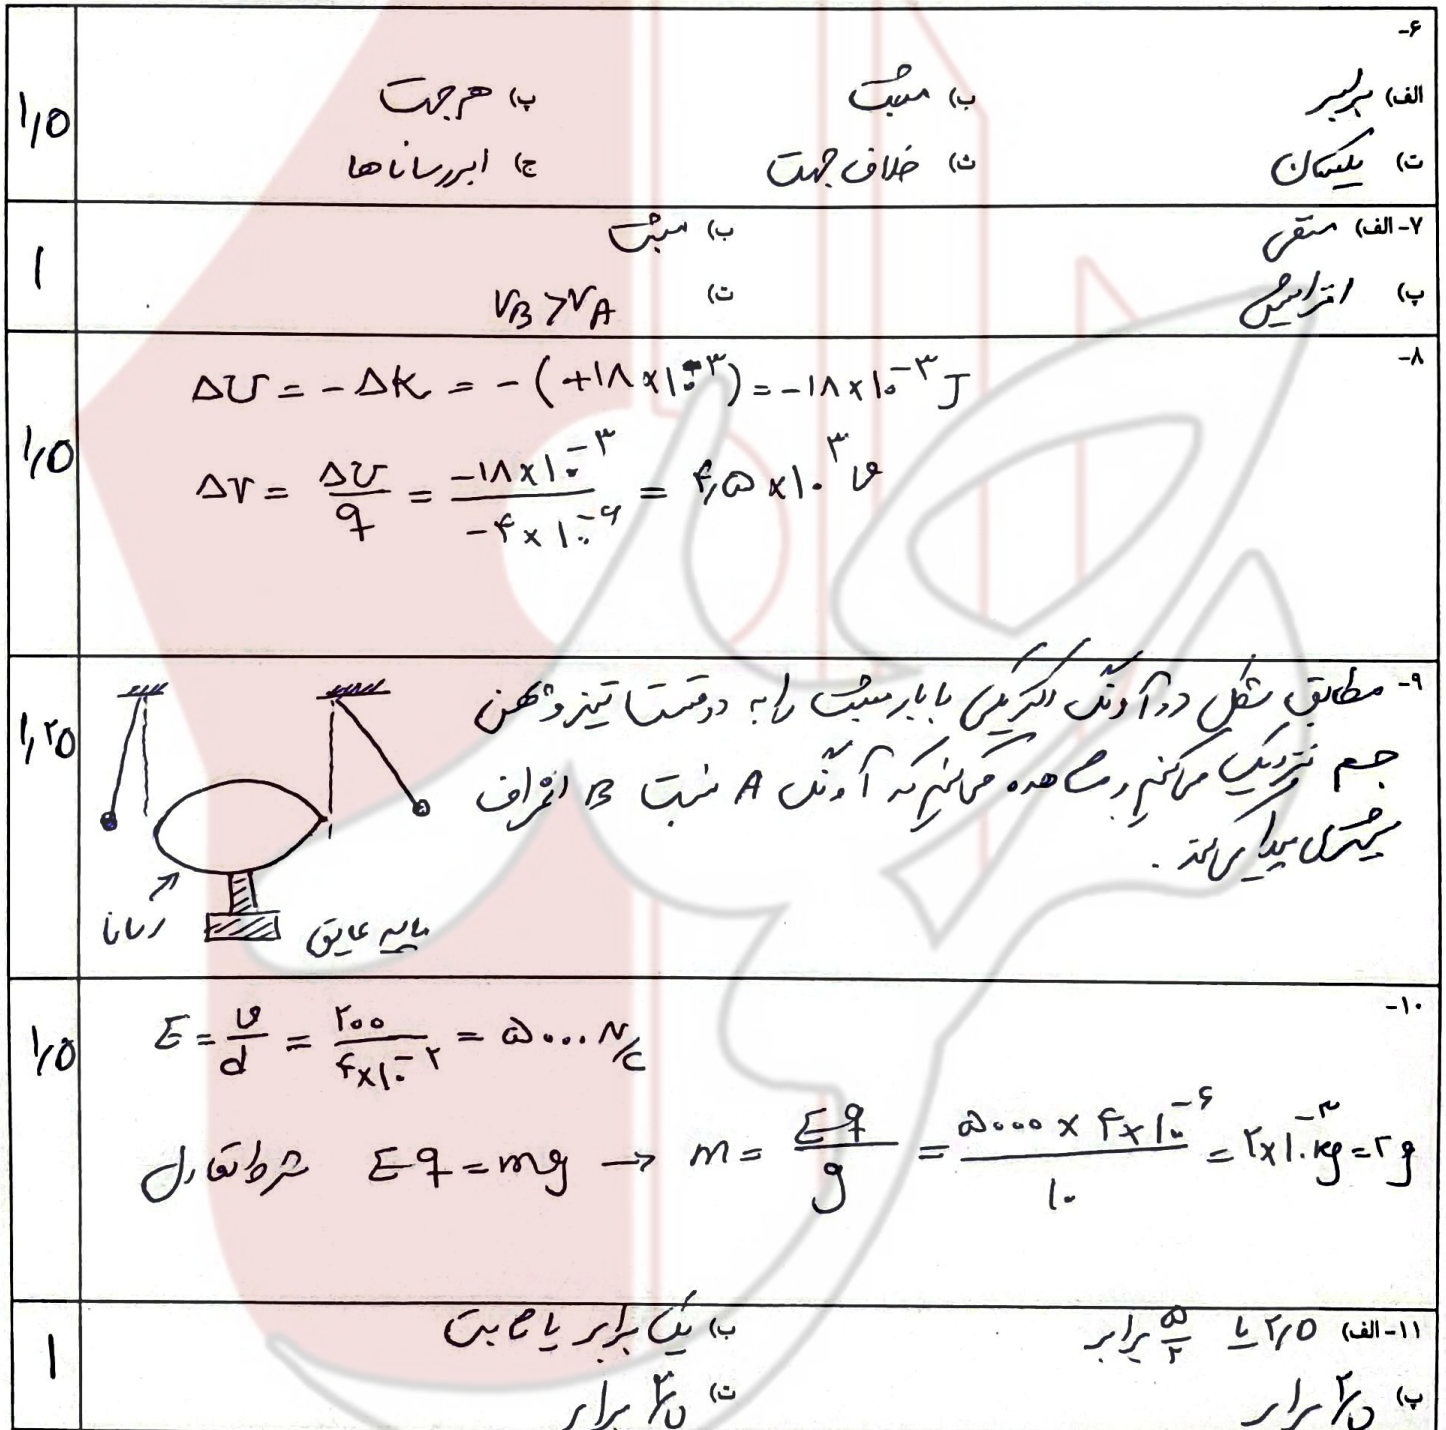 ۶-
الف) برابر ب) مثبت پ) هر جهت
ت) یکسان ث) خلاف جهت ج) ابررساناها
۱/۵
۷- الف) منفی ب) مثبت
پ) افزایش ت) VB > VA
۱
۸-
ΔU = -ΔK = -(+۱۸×۱۰^-۳) = -۱۸×۱۰^-۳ J
ΔV = ΔU/q = -۱۸×۱۰^-۳ / -۴×۱۰^-۶ = ۴٫۵×۱۰^۳ V
۱/۵
۹- مطابق شکل دو آونگ الکتریکی با بار مثبت را به دو قسمت تیز و پهن
جسم نزدیک می‌کنیم و مشاهده می‌کنیم که آونگ A نسبت B انحراف
بیشتری پیدا می‌کند.
رسانا
پایه عایق
۱/۲۵
۱۰-
E = V/d = ۲۰۰ / ۴×۱۰^-۲ = ۵۰۰۰ N/C
شرط تعادل Eq = mg → m = Eq/g = ۵۰۰۰×۴×۱۰^-۶ / ۱۰ = ۲×۱۰^-۳ kg = ۲g
۱/۵
۱۱- الف) ۲/۵ یا ۵/۲ برابر ب) یک برابر یا ثابت
پ) ۲/۵ برابر ت) ۲/۵ برابر
۱